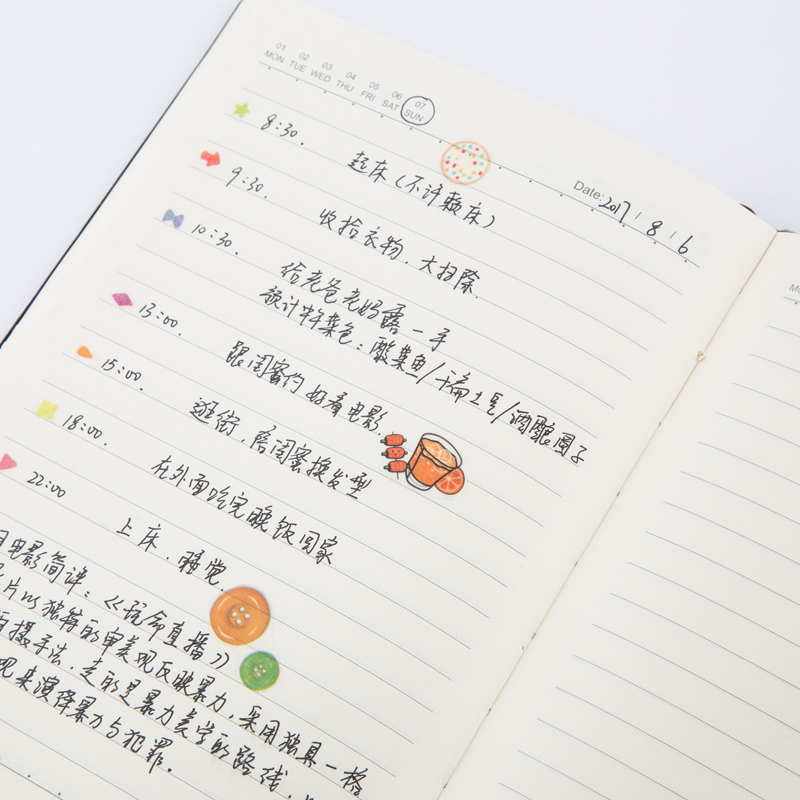 01 02 03 04 05 06 07
MON TUE WED THU FRI SAT SUN
Date: 2017 / 8 / 6
8:30. 起床（不许赖床）
9:30. 收拾衣物，大扫除.
10:30. 给老爸老妈露一手
预计料菜色：酸菜鱼/干煸土豆/酒酿圆子
13:00. 跟闺蜜约好看电影.
15:00. 逛街，陪闺蜜换发型
18:00. 在外面吃完晚饭回家
22:00 上床，睡觉.
电影简评：《活命直播》
片以独特的审美观反映暴力，采用独具一格
摄手法，走的是暴力美学的路线，
来演绎暴力与犯罪.